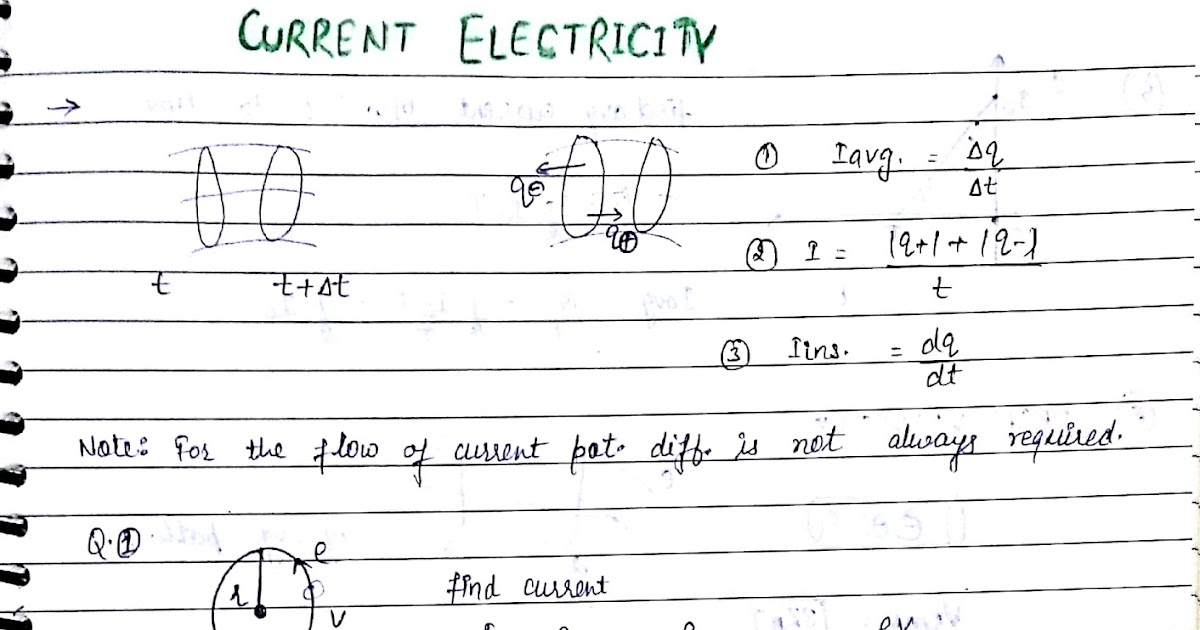 CURRENT ELECTRICITY
→
q⊖
q⊕
t
t+Δt
① Iavg. = Δq/Δt
② I = |q+| + |q-|/t
③ Iins. = dq/dt
Note: For the flow of current pot. diff. is not always required.
Q.①
e
r
v
find current
ev